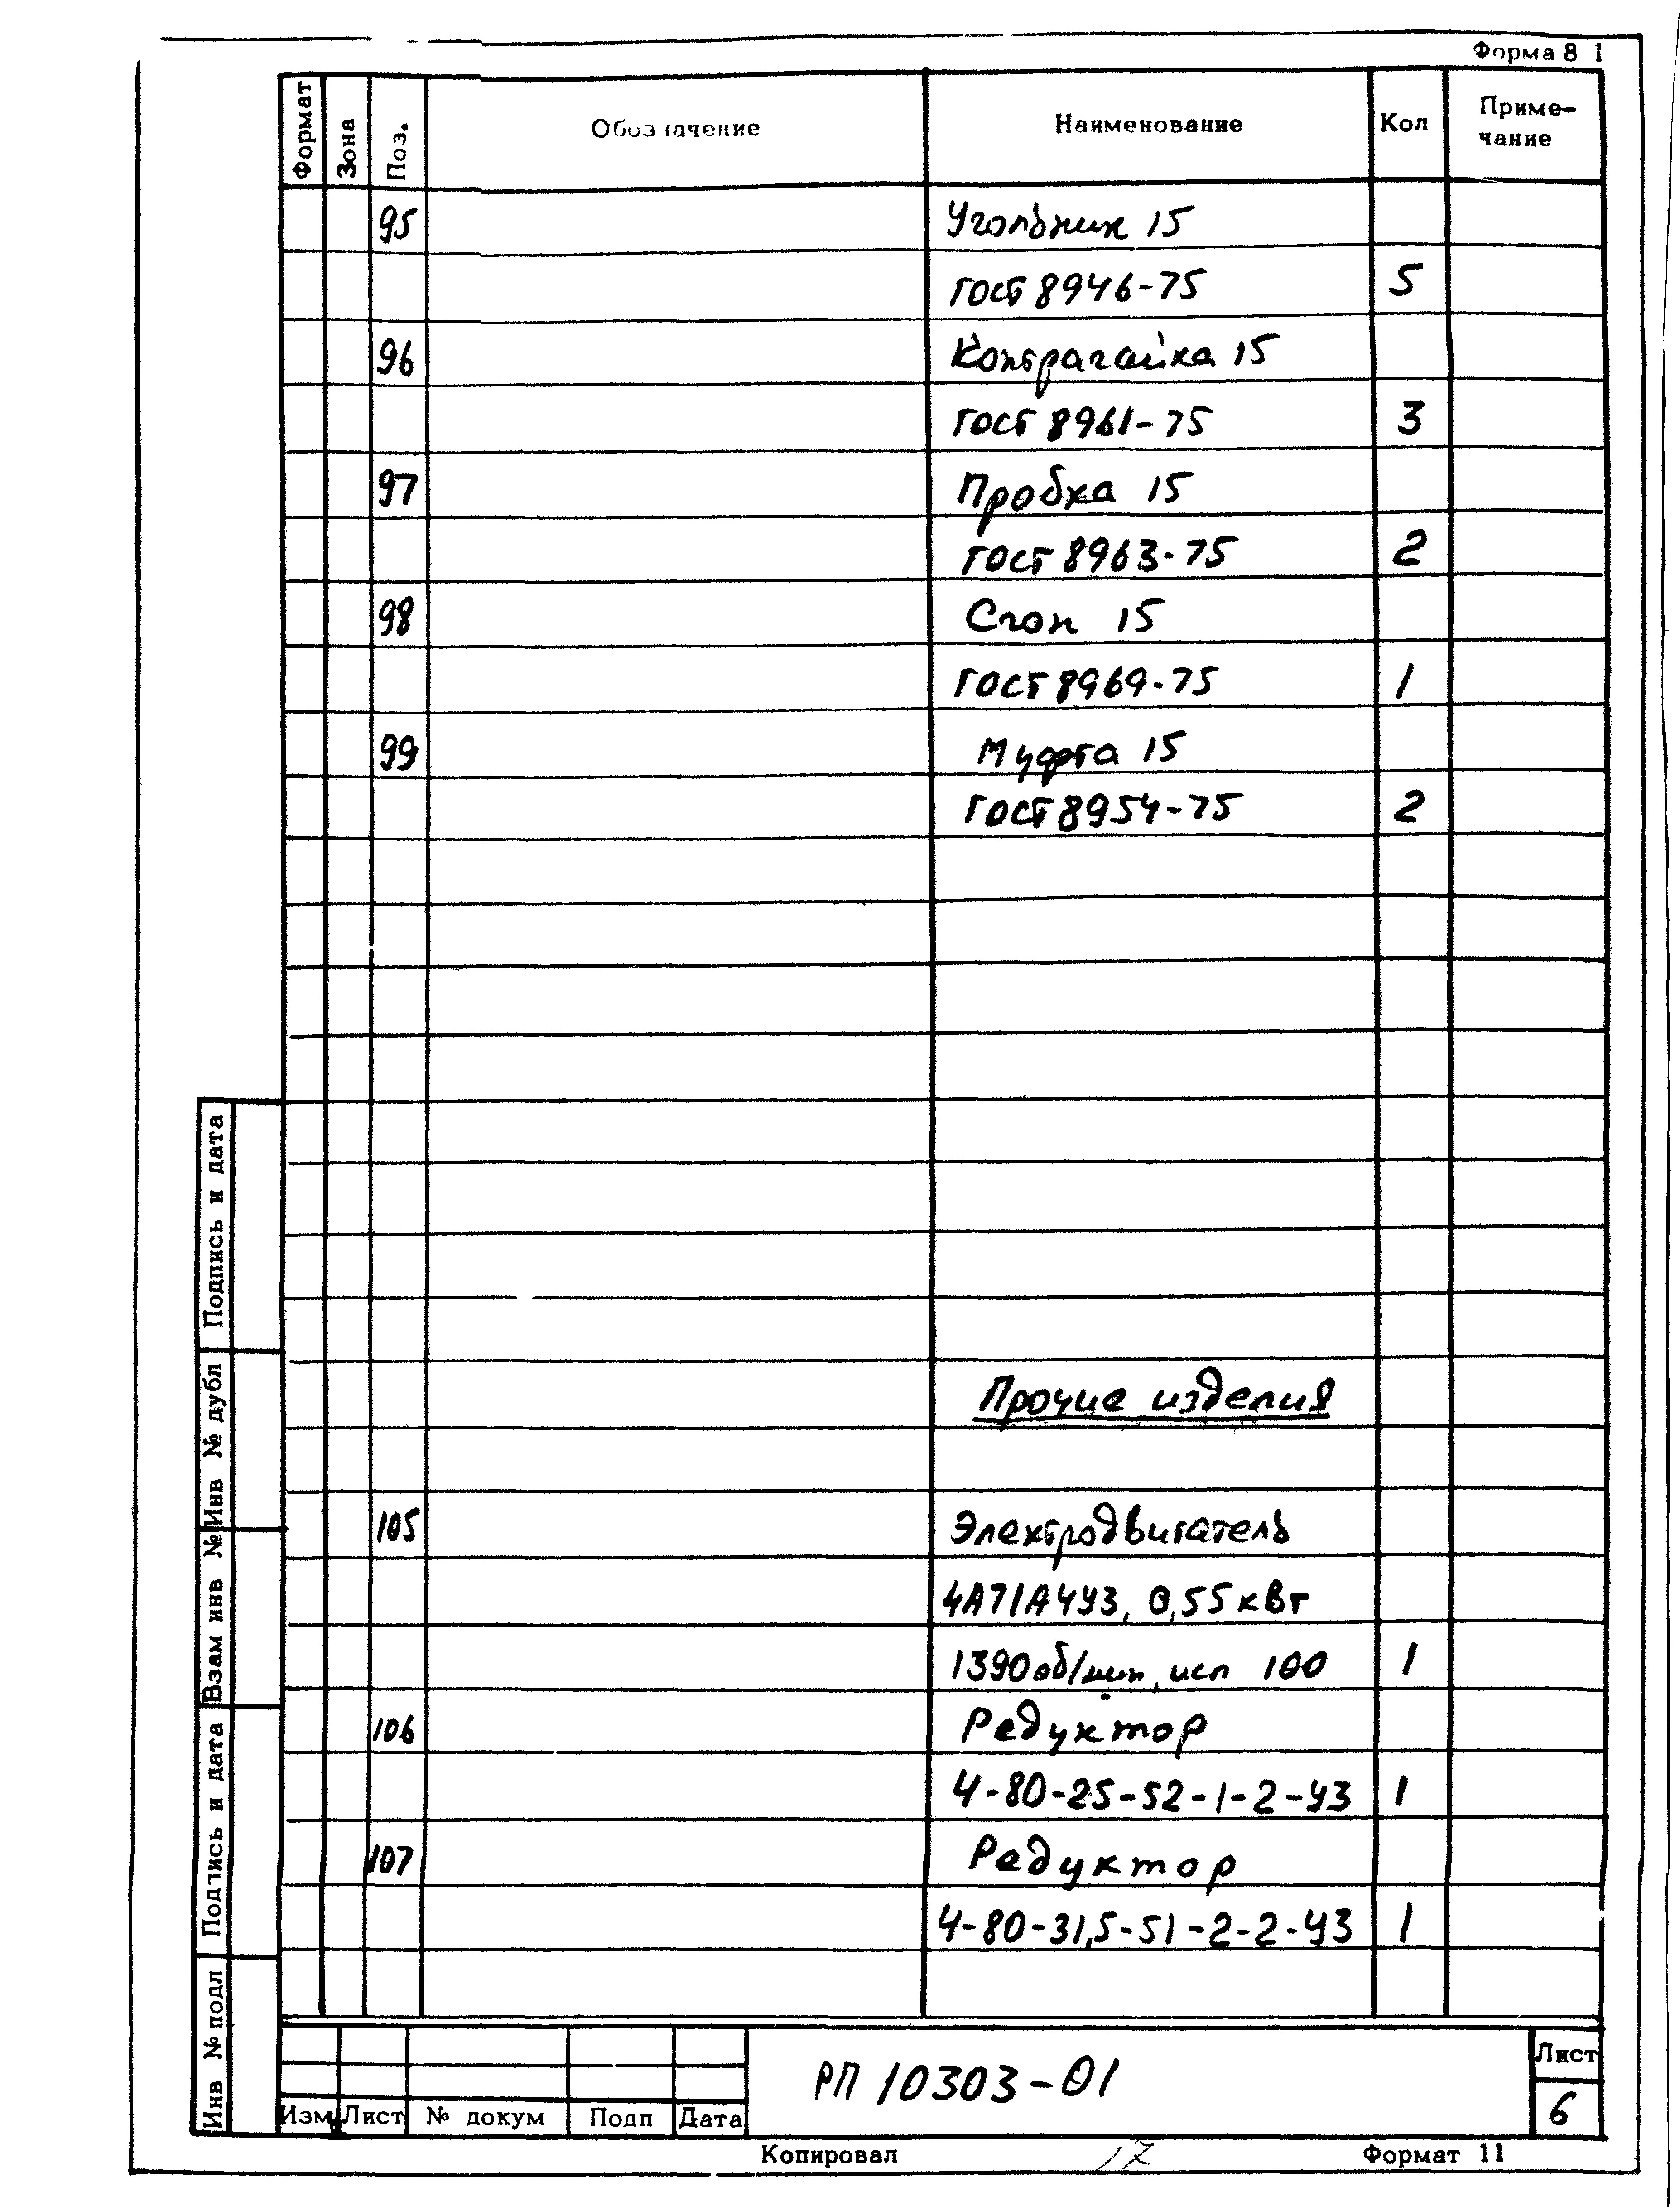 Форма 8 1
Формат Зона Поз. Обозначение Наименование Кол Приме-
чание
95 Угольник 15
ГОСТ 8946-75 5
96 Контрагайка 15
ГОСТ 8961-75 3
97 Пробка 15
ГОСТ 8963-75 2
98 Сгон 15
ГОСТ 8969-75 1
99 Муфта 15
ГОСТ 8954-75 2
Прочие изделия
105 Электродвигатель
4А71А4У3, 0,55 кВт
1390 об/мин, исп 100 1
106 Редуктор
Ч-80-25-52-1-2-У3 1
107 Редуктор
Ч-80-31,5-51-2-2-У3 1
Подпись и дата
Инв № дубл
Взам инв №
Подпись и дата
Инв № подл
РП 10303-01
Лист
6
Изм Лист № докум Подп Дата
Копировал 17 Формат 11